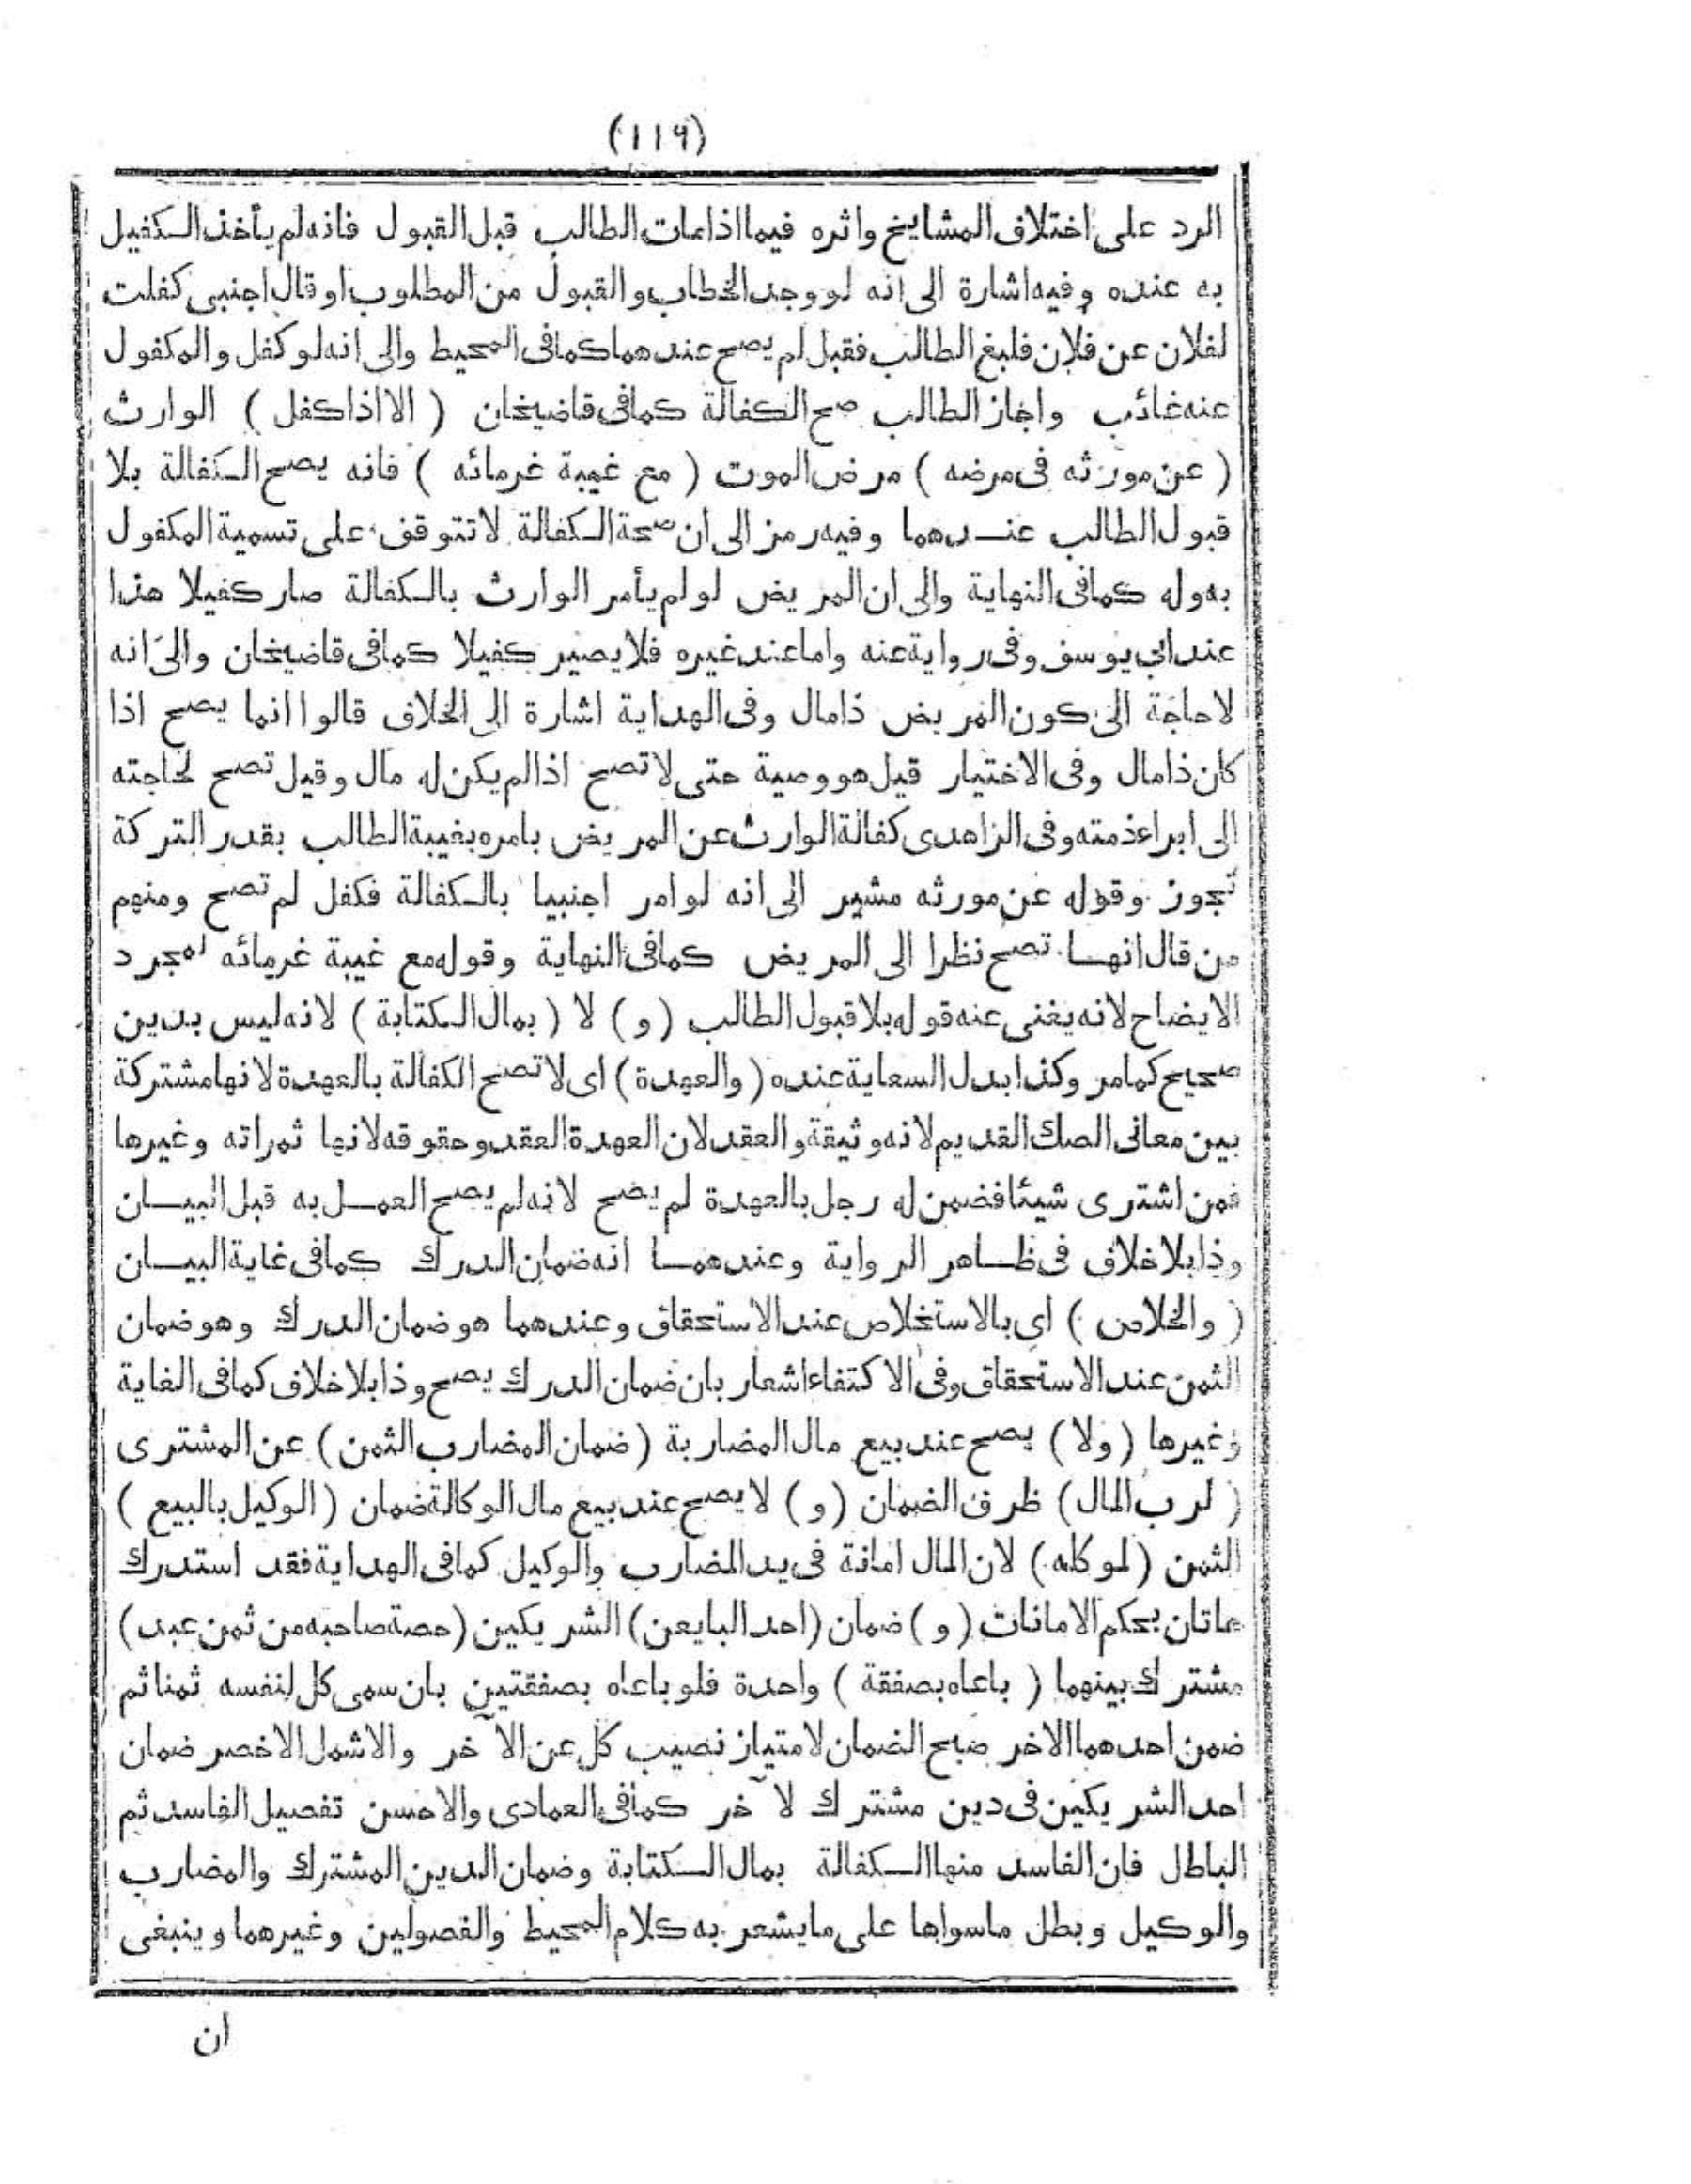 (١١٩)
الرد على اختلاف المشايخ واثره فيما اذا مات الطالب قبل القبول فانه لم يأخذ الكفيل
به عنده وفيه اشارة الى انه لو وجد الخطاب والقبول من المطلوب او قال اجنبى كفلت
لفلان عن فلان فلبغ الطالب فقبل لم يصح عندهما كما فى المحيط والى انه لو كفل والمكفول
عنه غائب واجاز الطالب صح الكفالة كما فى قاضيخان ( الا اذا كفل ) الوارث
( عن مورثه فى مرضه ) مرض الموت ( مع غيبة غرمائه ) فانه يصح الكفالة بلا
قبول الطالب عندهما وفيه رمز الى ان صحة الكفالة لا تتوقف على تسمية المكفول
به وله كما فى النهاية والى ان المريض لو لم يأمر الوارث بالكفالة صار كفيلا هذا
عند ابى يوسف وفى رواية عنه واما عند غيره فلا يصير كفيلا كما فى قاضيخان والى انه
لا حاجة الى كون المريض ذا مال وفى الهداية اشارة الى الخلاف قالوا انما يصح اذا
كان ذا مال وفى الاختيار قيل هو وصية حتى لا تصح اذا لم يكن له مال وقيل تصح لحاجته
الى ابراء ذمته وفى الزاهدى كفالة الوارث عن المريض بامره بغيبة الطالب بقدر التركة
تجوز وقوله عن مورثه مشير الى انه لو امر اجنبيا بالكفالة فكفل لم تصح ومنهم
من قال انها تصح نظرا الى المريض كما فى النهاية وقوله مع غيبة غرمائه لمجرد
الايضاح لانه يغنى عنه قوله بلا قبول الطالب (و) لا ( بمال الكتابة ) لانه ليس بدين
صحيح كما مر وكذا بدل السعاية عنده ( والعهدة ) اى لا تصح الكفالة بالعهدة لانها مشتركة
بين معانى الصك القديم لانه وثيقة والعقد لان العهدة العقد وحقوقه لانها ثمراته وغيرها
فمن اشترى شيئا فضمن له رجل بالعهدة لم يصح لانه لم يصح العمل به قبل البيان
وذا بلا خلاف فى ظاهر الرواية وعندهما انه ضمان الدرك كما فى غاية البيان
( والخلاص ) اى بالاستخلاص عند الاستحقاق وعندهما هو ضمان الدرك وهو ضمان
الثمن عند الاستحقاق وفى الاكتفاء اشعار بان ضمان الدرك يصح وذا بلا خلاف كما فى الغاية
وغيرها (ولا) يصح عند بيع مال المضاربة (ضمان المضارب الثمن) عن المشترى
( لرب المال) ظرف الضمان (و) لا يصح عند بيع مال الوكالة ضمان (الوكيل بالبيع )
الثمن (لموكله) لان المال امانة فى يد المضارب والوكيل كما فى الهداية فقد استدرك
هاتان بحكم الامانات (و) ضمان (احد البايعن) الشريكين (حصة صاحبه من ثمن عبد)
مشترك بينهما ( باعاه بصفقة ) واحدة فلو باعاه بصفقتين بان سمى كل لنفسه ثمنا ثم
ضمن احدهما الاخر صح الضمان لامتياز نصيب كل عن الآخر والاشمل الاخصر ضمان
احد الشريكين فى دين مشترك لآخر كما فى العمادى والاحسن تفصيل الفاسد ثم
الباطل فان الفاسد منها الكفالة بمال الكتابة وضمان الدين المشترك والمضارب
والوكيل وبطل ما سواها على ما يشعر به كلام المحيط والفصولين وغيرهما وينبغى
ان